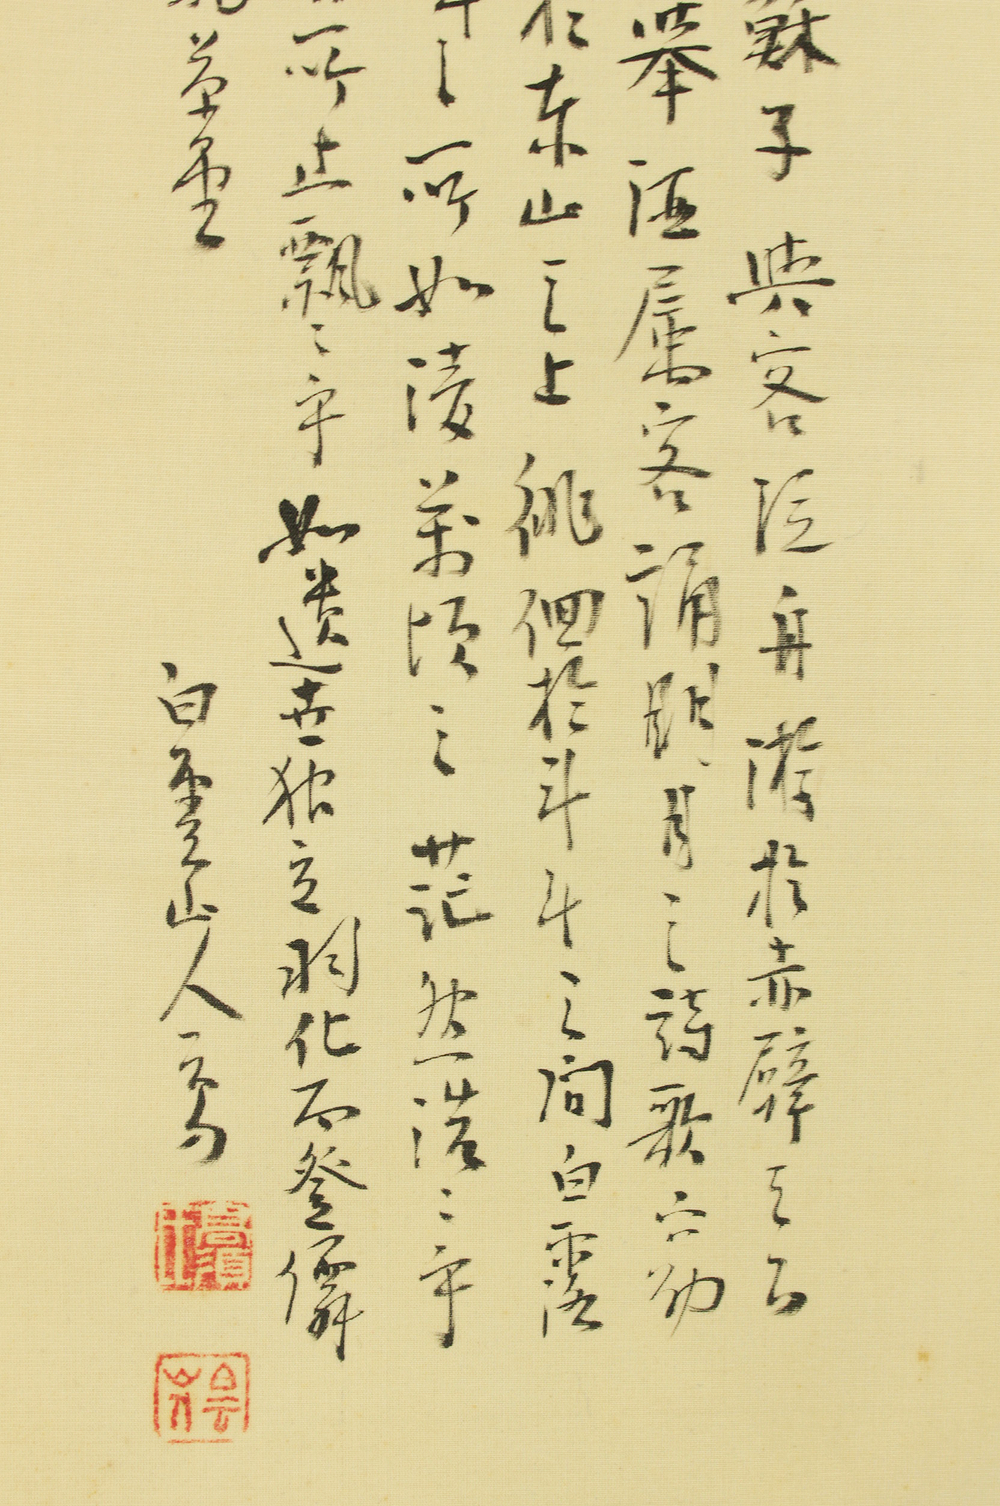 蘇子與客泛舟游於赤壁之下
舉酒屬客誦明月之詩歌窈
於東山之上徘徊於斗牛之間白露
之所如凌萬頃之茫然浩〻乎
所止飄〻乎如遺世獨立羽化而登僊
草堂
白雲山人寫